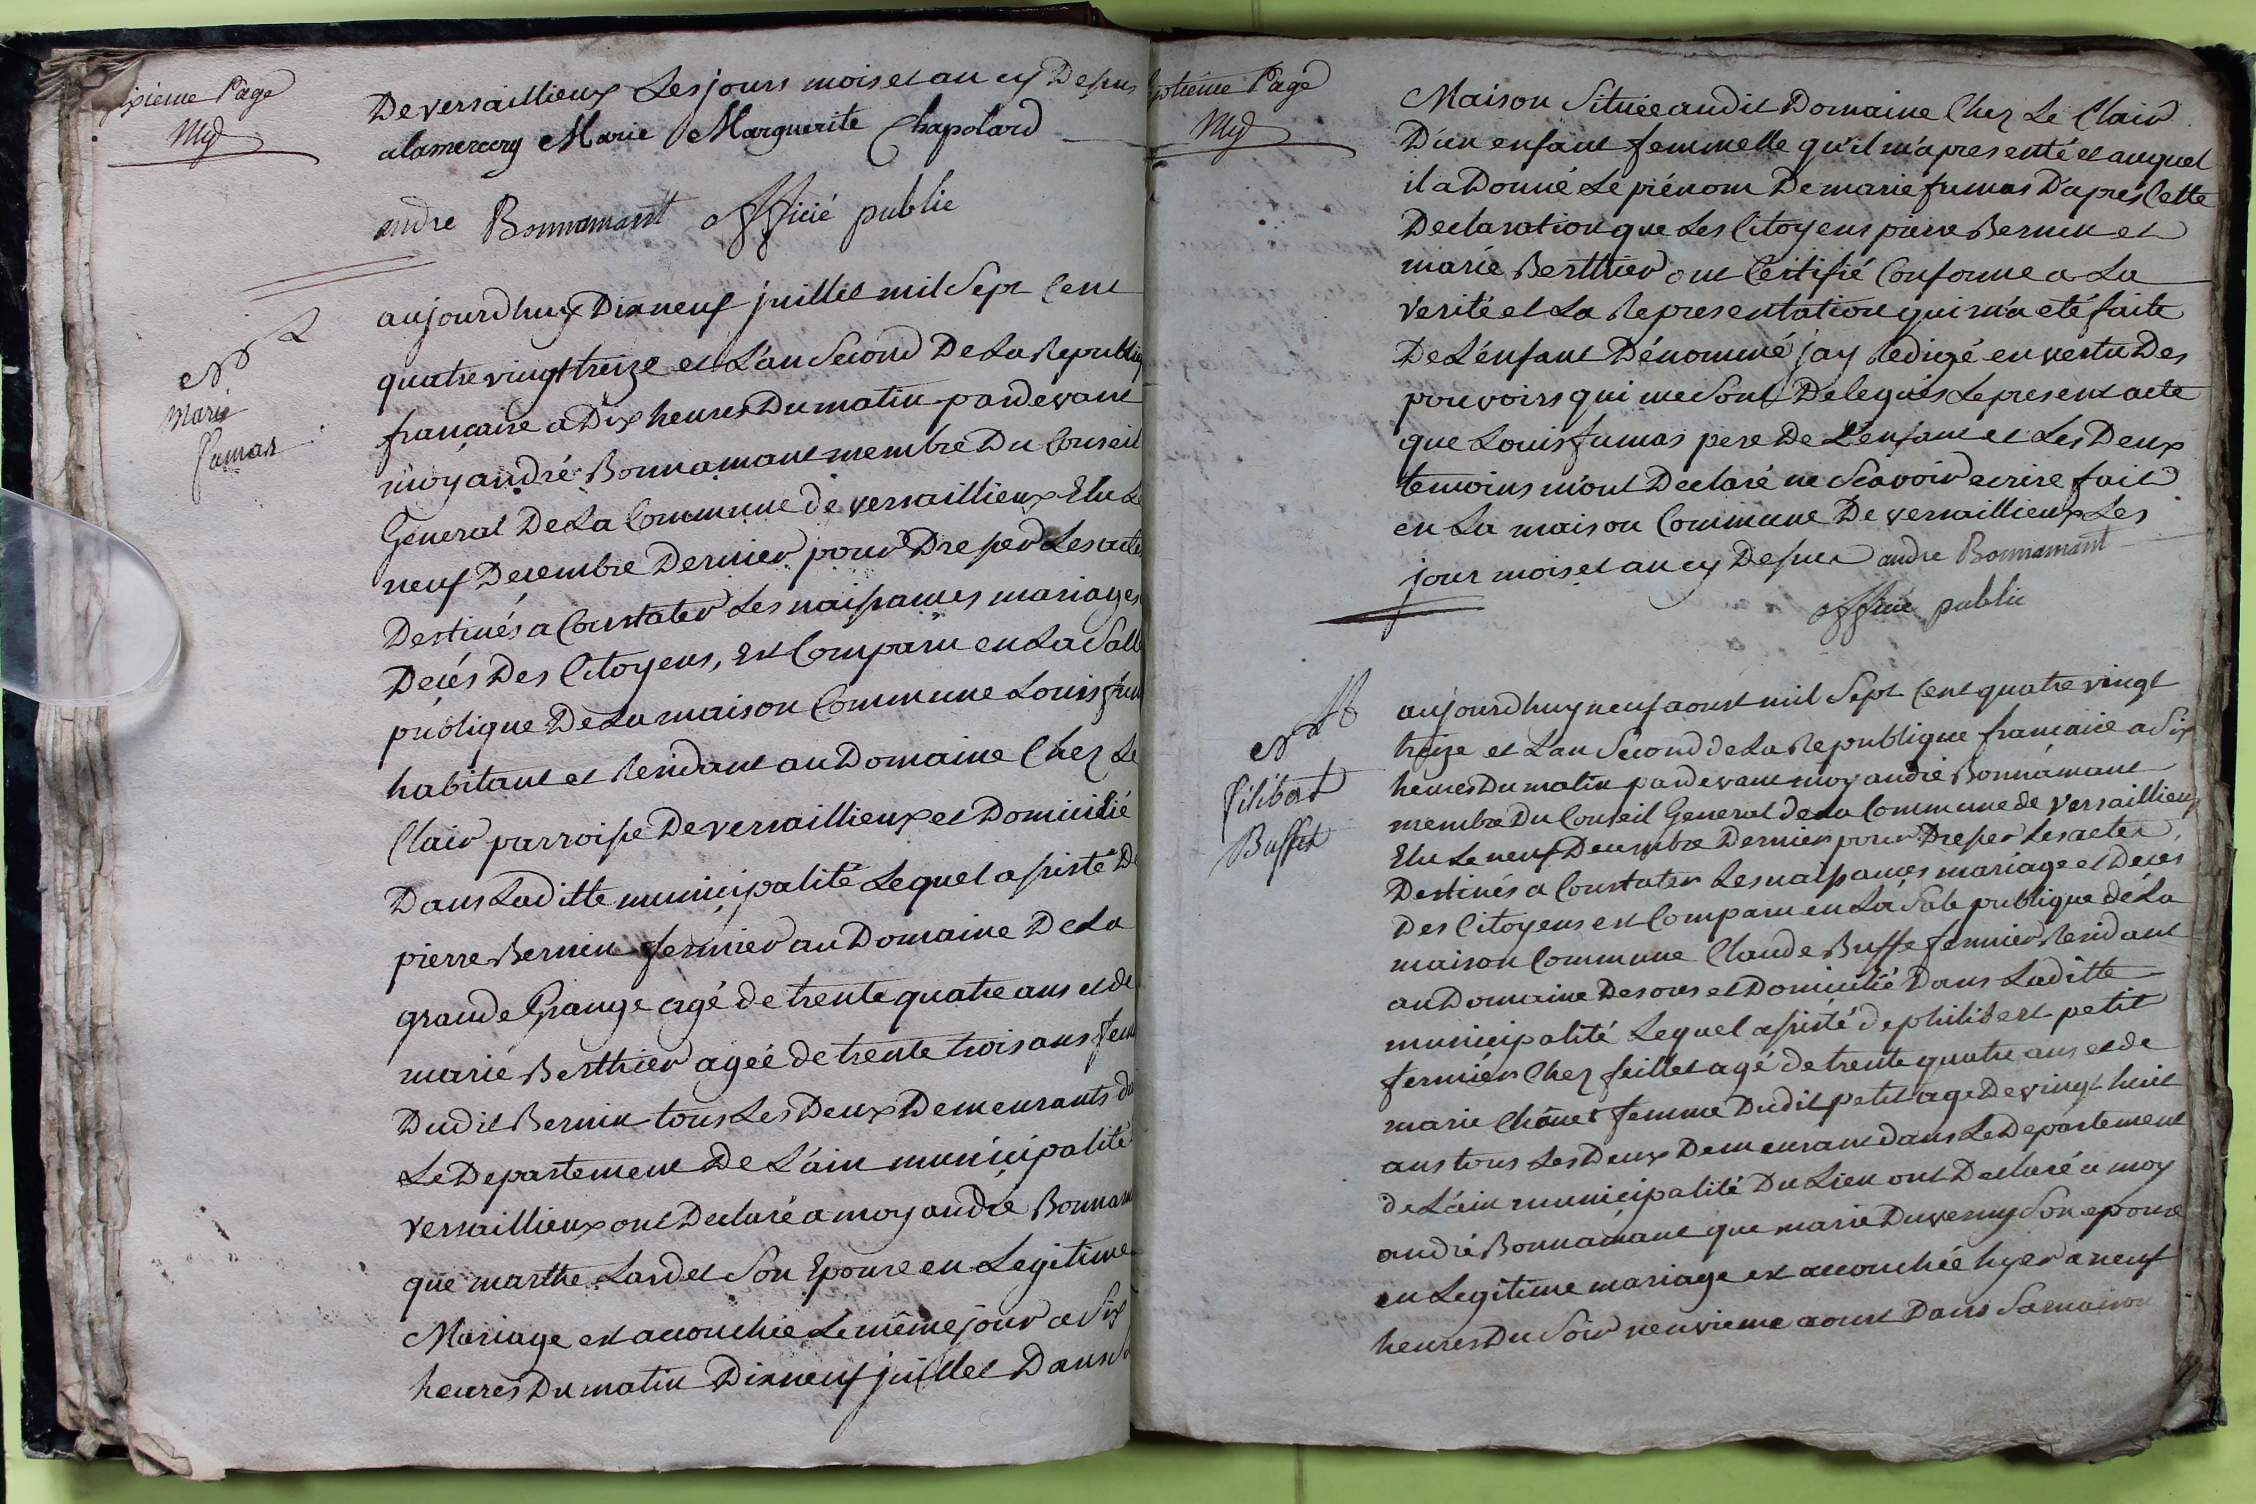 Sixieme Page
De versaillieux Les jours mois et an cy Depuis
alamercery Marie Marguerite Chapolard
andre Bonnamant officié public
aujourdhuy Dixneuf juillet mil Sept Cent
N
marie
fumas
quatre vingt treize et L'an Second De La Republiq
francaise a Dix heures Du matin pardevant
moy andré Bonnamant membre Du Conseil
General De La Commune de versaillieux Elu Le
neuf Decembre Dernier pour Dresser Les acte
Destinés a Constater Les naissances mariages
Decés Des Citoyens, Est Comparu en La Salle
publique De La maison Commune Louis fum
habitant et Residant au Domaine Chez Le
Clair parroisse De versaillieux et Domicilié
Dans Laditte municipalité Lequel assisté De
pierre Bernin fermier au Domaine De La
grande Grange agé de trente quatre ans et de
marie Berthier ageé de trente trois ans fem
Dudit Bernin tous Les Deux Demeurants da
Le Departement De L'ain municipalité
versaillieux ont Declaré a moy andré Bonnam
que marthe Lardet Son Epouse en Legitime
Mariage est accouchée Le même jour a Six
heures Du matin Dixneuf juillet Dans
ptieme Page
Maison Situeé audit Domaine Chez Le Clair
D'un enfant femmelle qu'il m'a presenté et auquel
il a Donné Le prénom De marie fumas D'aprés Cette
Declaration que Les Citoyens pierre Bernin et
marie Berthier ont Certifié Conforme a La
verité et La Representation qui m'a eté faite
De L'enfant Dénommé jay Redigé en vertu Des
pouvoirs qui me Sont Delegués Le present acte
que Louis fumas pere De L'enfant et Les Deux
temoins m'ont Declaré ne Scavoir ecrire fait
en La maison Commune De versaillieux Les
jour mois et an cy Depuis andre Bonnamant
officié public
N
filibert
Buffet
aujourdhuy neuf aoust mil Sept Cent quatre vingt
treize et L'an Second de La Republique francaise a Six
heures Du matin pardevant moy andré Bonnamant
membre Du Conseil General de La Commune de versaillieux
Elu Le neuf Decembre Dernier pour Dresser Les actes
Destinés a Constater Les naissances mariage et Decés
Des Citoyens est Comparu en La Sale publique de La
maison Commune Claude Buffe fermier Residant
au Domaine Desous et Domicilié Dans Laditte
municipalité Lequel assisté de philibert petit
fermier Chez feillet agé de trente quatre ans et de
marie Chanet femme Dudit petit age De vingt huit
ans tous Les Deux Demeurant dans Le Departement
de L'ain municipalité Du Lieu ont Declaré a moy
andré Bonnamant que marie Duverny Son epouse
en Legitime mariage est accouchée hyer a neuf
heures Du Soir neuvieme aoust Dans Sa maison